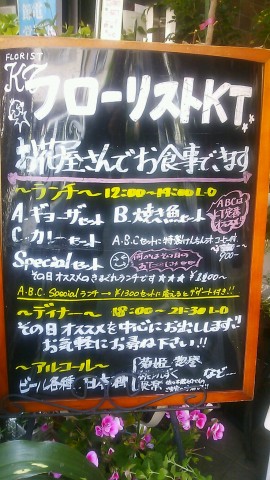 FLORIST
KT
フローリストKT
お花屋さんでお食事できます
〜ランチ〜 12:00〜14:00 L.O
A.ギョーザセット B.焼き魚セット
ABCは
C.カレーセット A.B.Cセットに特製けんちん コーヒー付
900-
Specialセット
その日オススメのきまぐれランチです★★★
A.B.C. Specialランチ→¥1300セットに変えるとデザート付き!!
〜ディナー〜 18:00〜21:30 L.O
その日オススメを中心にお出しします!!
お気軽にお尋ね下さい!!
〜アルコール〜
ビール各種 日本酒
菊姫
など…